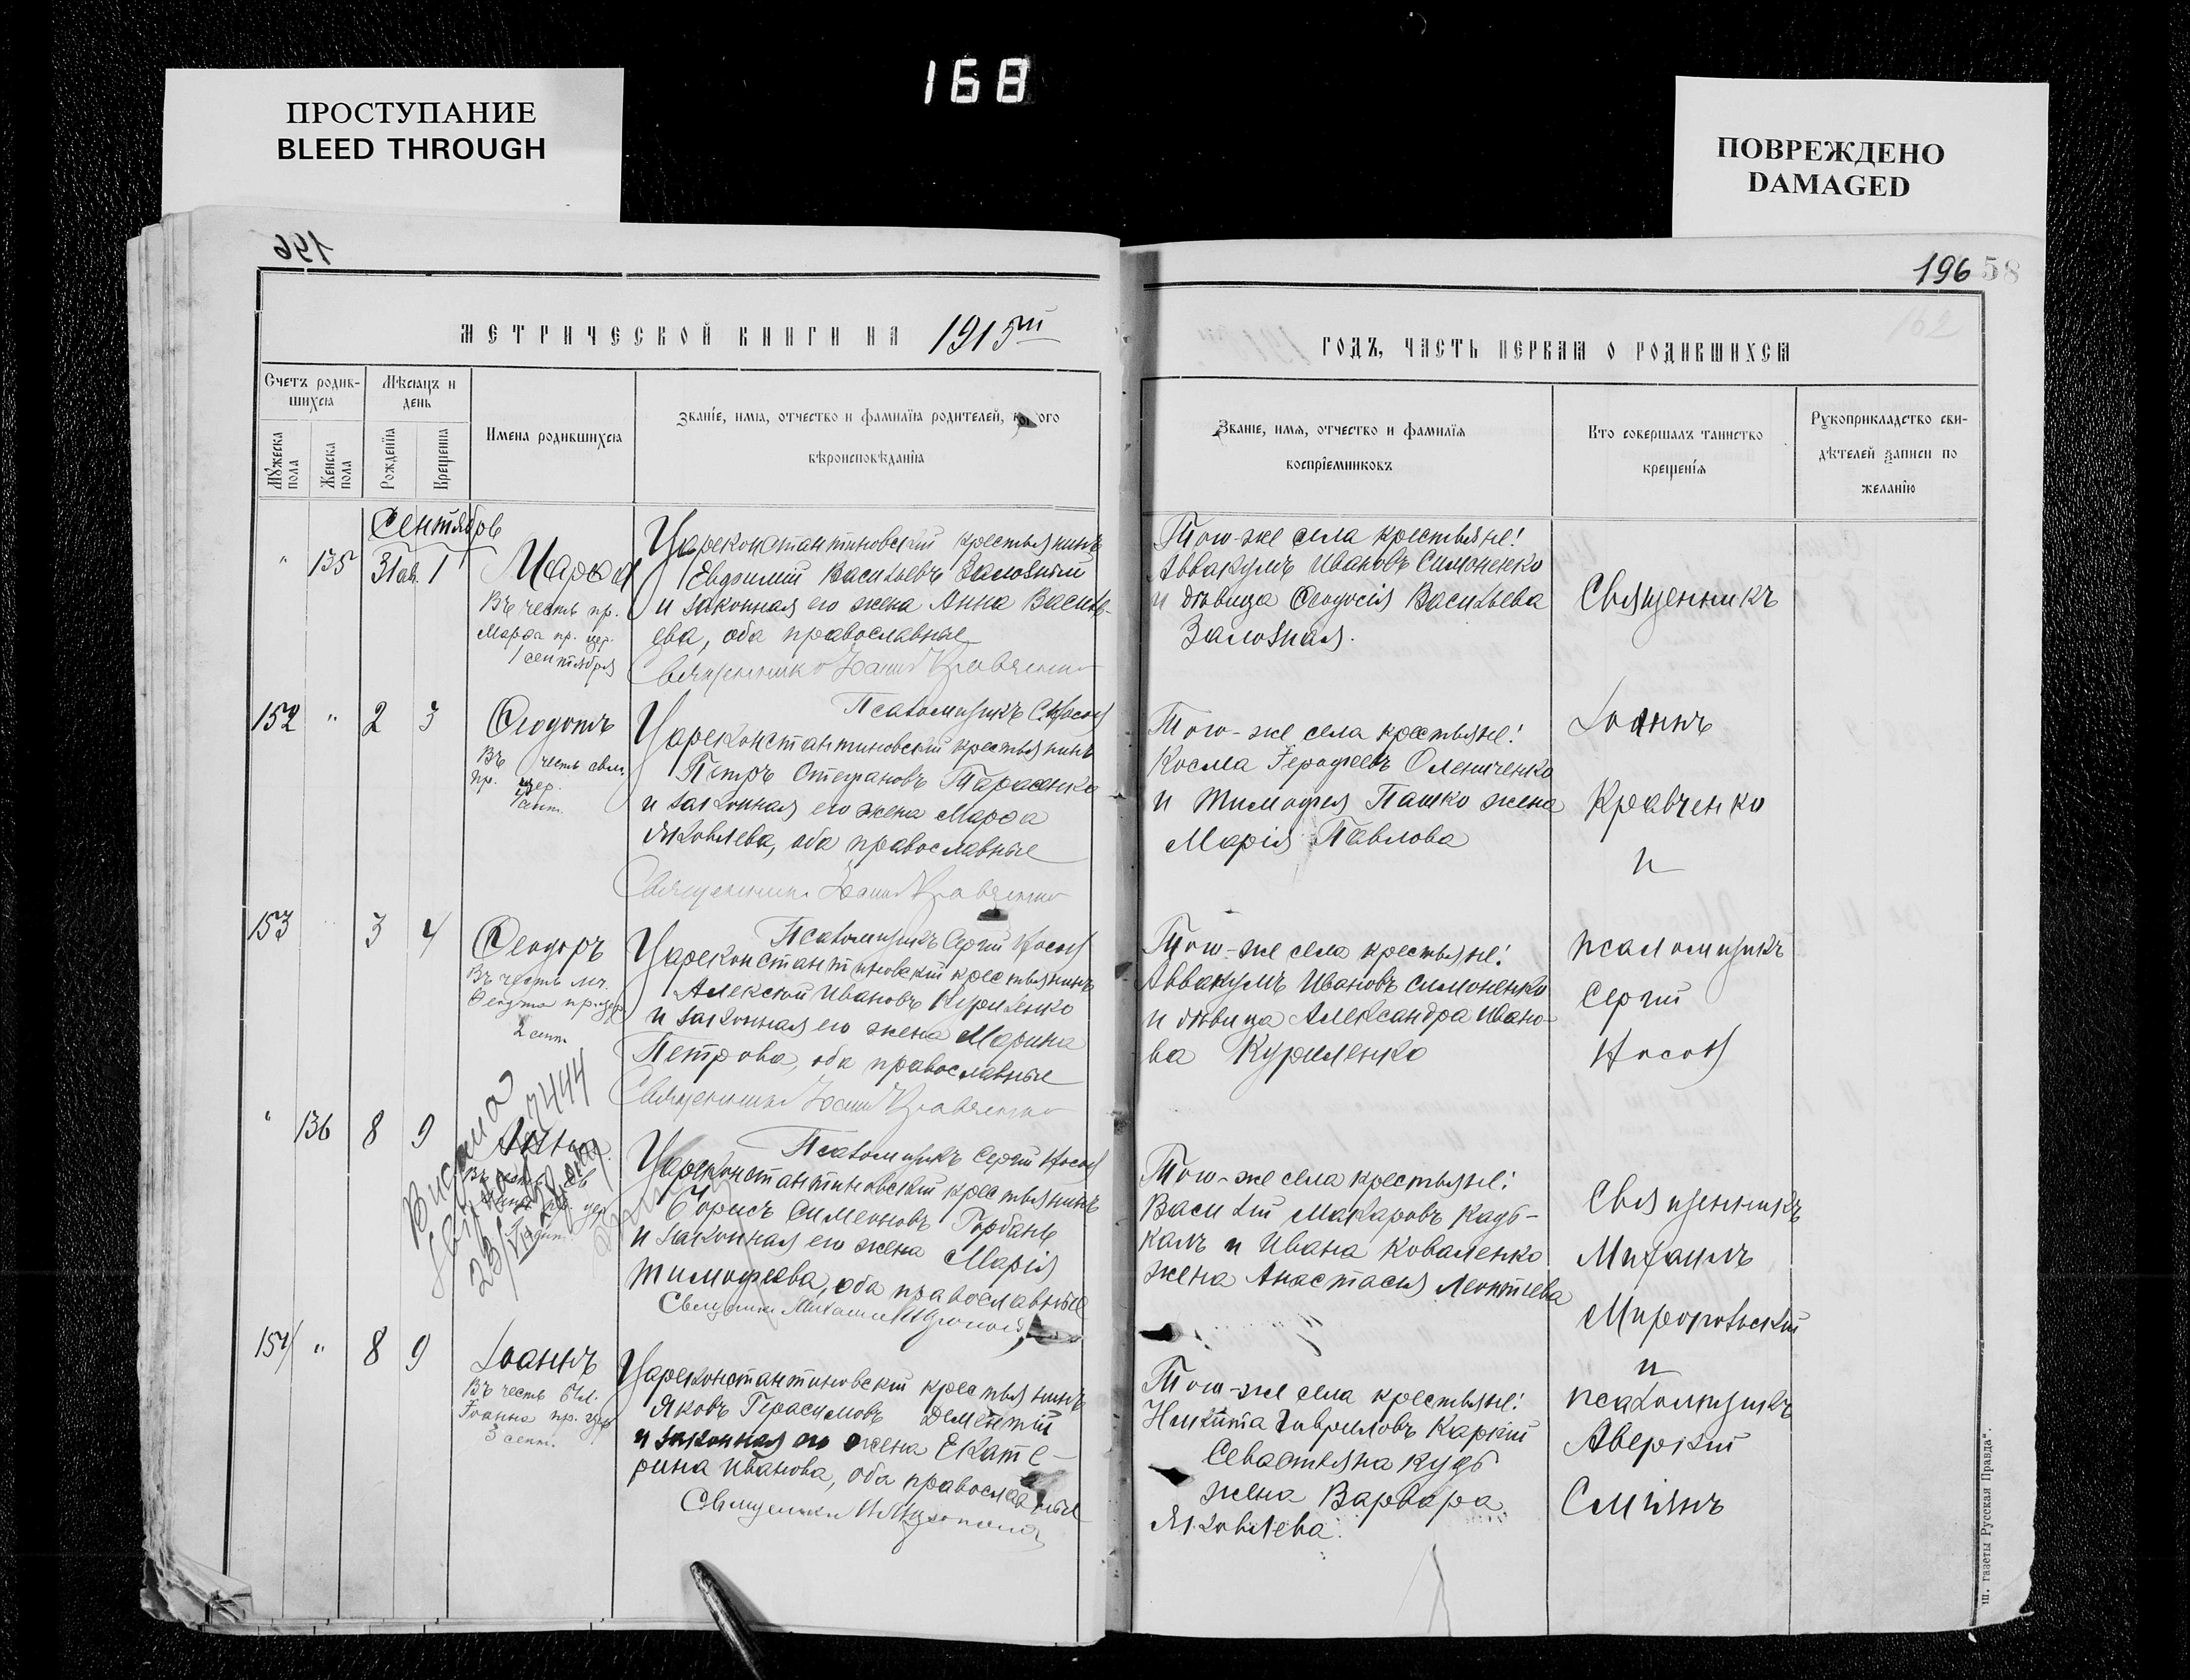 168
ПРОСТУПАНИЕ
BLEED THROUGH
ПОВРЕЖДЕНО
DAMAGED
196
196 58
162
МЕТРИЧЕСКОЙ КНИГИ НА 1915й
ГОДЪ, ЧАСТЬ ПЕРВАЯ О РОДИВШИХСЯ
Счетъ родив-
шихся
Мѣсяцъ и
день
Мужеска
пола
Женска
пола
Рожденія
Крещенія
Имена родившихся
Званіе, имя, отчество и фамилія родителей, ого
вѣроисповѣданія
Званіе, имя, отчество и фамилія
воспріемниковъ
Кто совершалъ таинство
крещенія
Рукоприкладство сви-
дѣтелей записи по
желанію
Сентябрь
" 135 31 ав. 1
Марѳа
Въ честь пр.
Марѳа пр. цер.
1 сентября
Цареконстантиновскій крестьянинъ
Евдокимъ Васильевъ Заловный
и законная его жена Анна Василь-
ева, оба православные
Священникъ Іоаннъ Кравченко
Псаломщикъ С. Носов
Того-же села крестьяне:
Аввакумъ Ивановъ Симоненко
и дѣвица Ѳеодосія Васильева
Заловная.
152 " 2 3
Ѳеодотъ
Въ честь
пр. цер.
1 сент.
Цареконстантиновскій крестьянинъ
Петръ Стефановъ Тарасенко
и законная его жена Марѳа
Яковлева, оба православные
Священникъ Іоаннъ Кравченко
Псаломщикъ Сергій Носов
Того-же села крестьяне:
Косма Герофеевъ Олениченко
и Тимофея Пашко жена
Марія Павлова
153 3 4
Ѳеодоръ
Въ честь мч.
пр. цер
2 сент.
Цареконстантиновскій крестьянинъ
Алексѣй Ивановъ Куриленко
и законная его жена Марина
Петрова, оба православные
Священникъ Іоаннъ Кравченко
Псаломщикъ Сергій Носов
Того-же села крестьяне:
Аввакумъ Ивановъ Симоненко
и дѣвица Александра Ивано-
ва Куриленко
Священникъ
Іоаннъ
Кравченко
и
псаломщикъ
Сергій
Носов
" 136 8 9
Анна
Въ честь
Цареконстантиновскій крестьянинъ
Борисъ Симеоновъ Горбань
и законная его жена Марія
Тимофеева, оба православные
Священникъ Михаилъ
Того-же села крестьяне:
Василій Макаровъ Кадб-
калъ и Ивана Коваленко
жена Анастасія Леонтіева
154 " 8 9
Іоаннъ
Въ честь бл.
Іоанна пр. цер
3 сент.
Цареконстантиновскій крестьянинъ
Яковъ Герасимовъ Дементій
и законная его жена Екате-
рина Иванова, оба православные
Священникъ М.
Того-же села крестьяне:
Никита Гавриловъ Каркій
Севастьяна Кудб
жена Варвара
Яковлева.
Священникъ
Михаилъ
и
псаломщикъ
Аверкій
Смаінъ
ш. газеты „Русская Правда“.